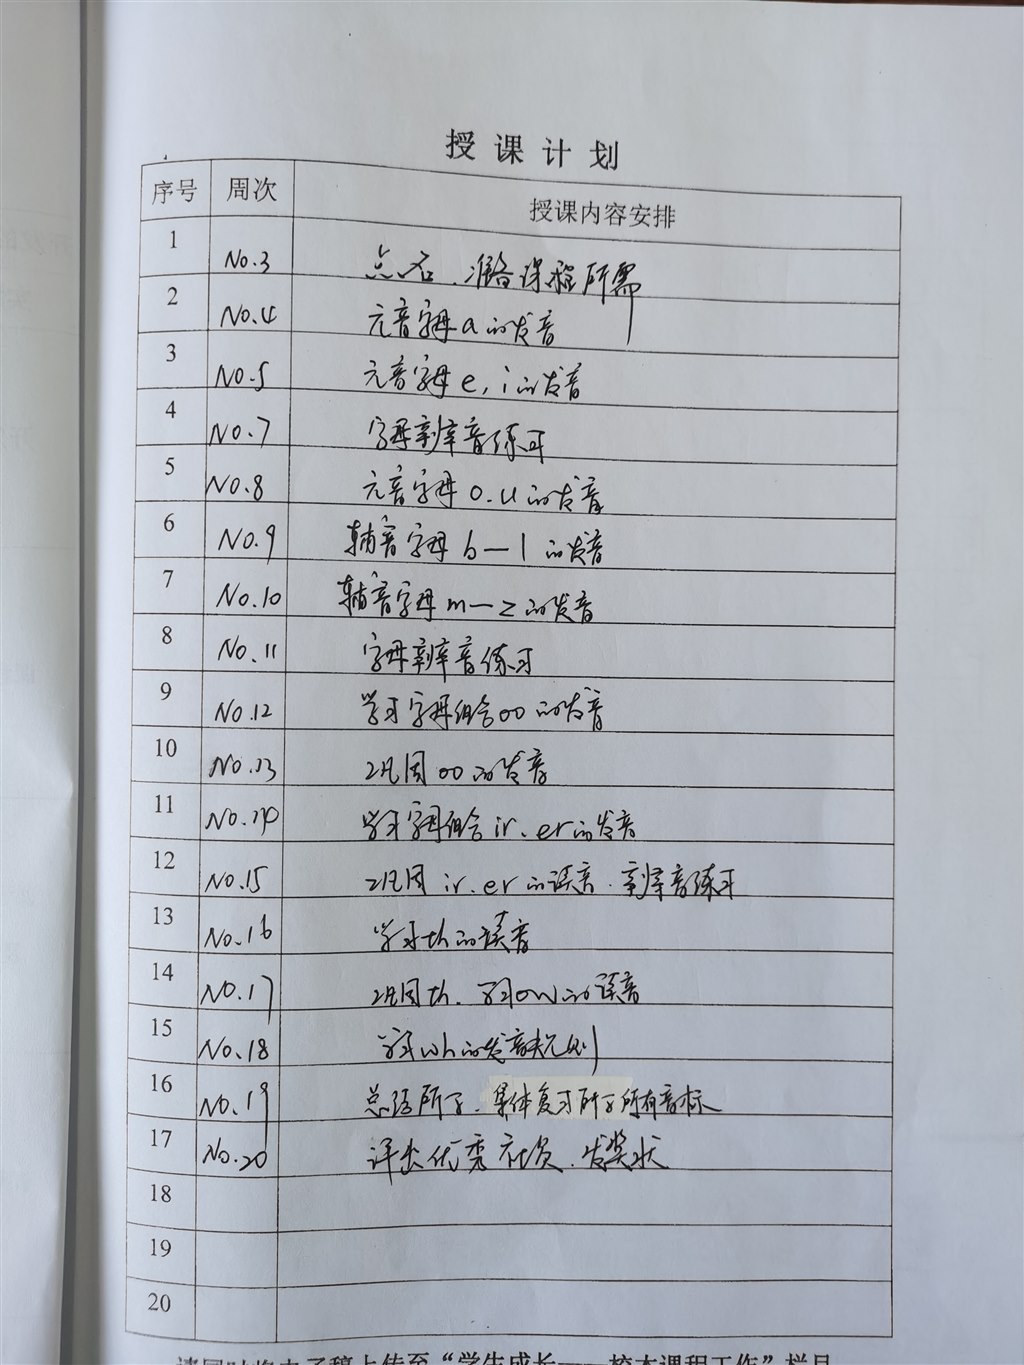 授课计划
序号 周次 授课内容安排
1 No.3 点名、准备课程所需
2 No.4 元音字母a的发音
3 No.5 元音字母e, i的发音
4 No.7 字母辨音练习
5 No.8 元音字母o.u的发音
6 No.9 辅音字母b—l的发音
7 No.10 辅音字母m—z的发音
8 No.11 字母辨音练习
9 No.12 学习字母组合oo的发音
10 No.13 巩固oo的发音
11 No.14 学习字母组合ir.er的发音
12 No.15 巩固ir.er的读音.辨音练习
13 No.16 学习th的读音
14 No.17 巩固th.学习ow的读音
15 No.18 学习wh的发音规则
16 No.19 总结所学.集体复习所学所有音标
17 No.20 评出优秀社员.发奖状
18
19
20
请同时将电子稿上传至“学生成长——校本课程工作”栏目